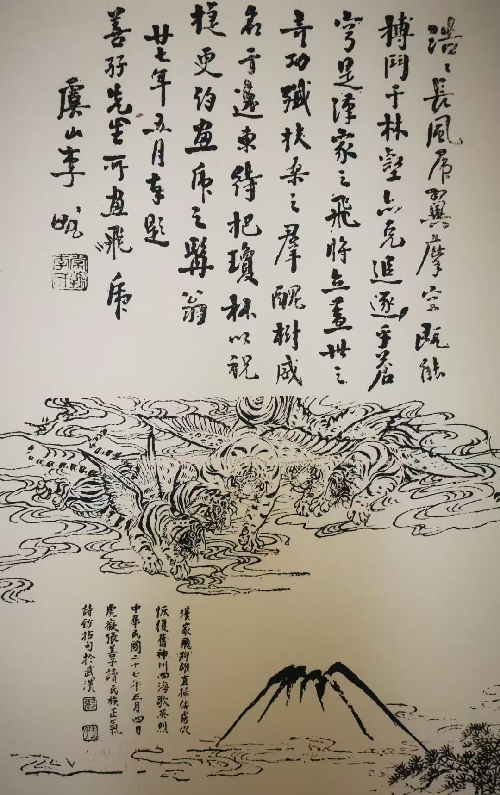 浩々長風虎翼摩空既能
搏鬥于林壑亦克追逐乎蒼
穹是漢家之飛將立蓋世之
奇功殲扶桑之群醜樹威
名于邊東待把瓊杯以祝
捷更約畫虎之髯翁
廿七年五月奉題
善孖先生所畫飛虎
虞山李
漢家飛將雄直搗
恢復舊神州四海歌英烈
中華民國二十七年五月四日
虎癡張善孖讀民族正氣
詩鈔拈句於武漢